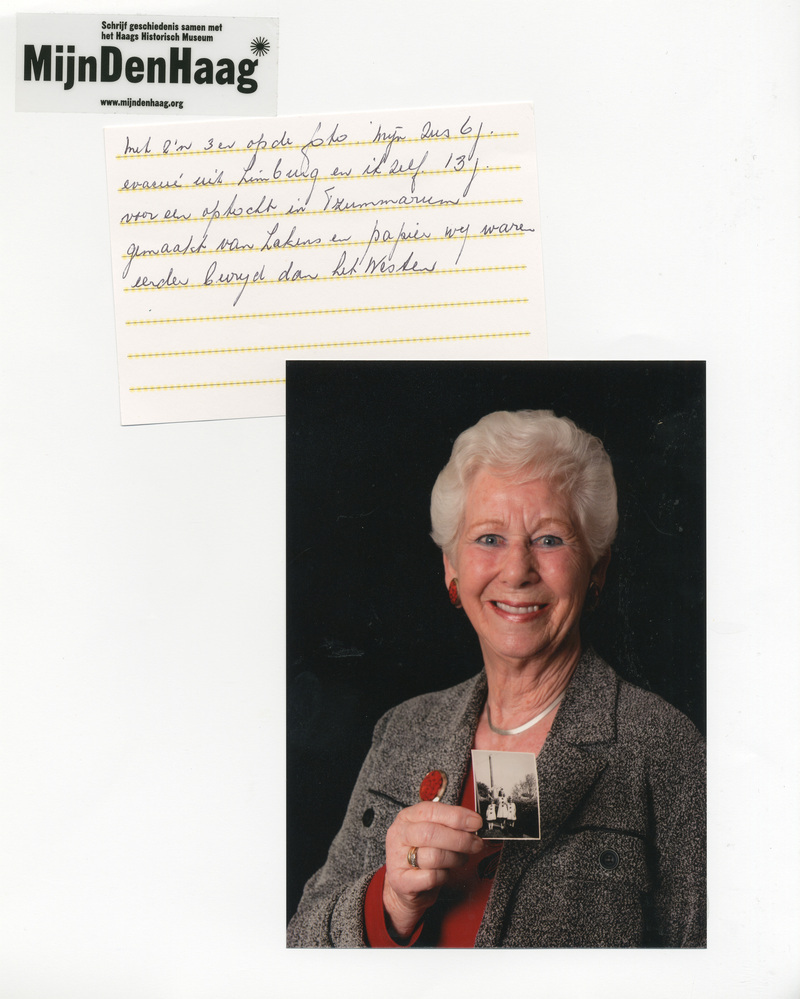 Schrijf geschiedenis samen met
het Haags Historisch Museum
MijnDenHaag
www.mijndenhaag.org
Met z'n 3en op de foto Mijn Zus 6j.
evacué uit Limburg en ik zelf 13j.
voor een optocht in Tzummarum
gemaakt van Lakens en papier wij waren
eerder bevrijd dan het Westen